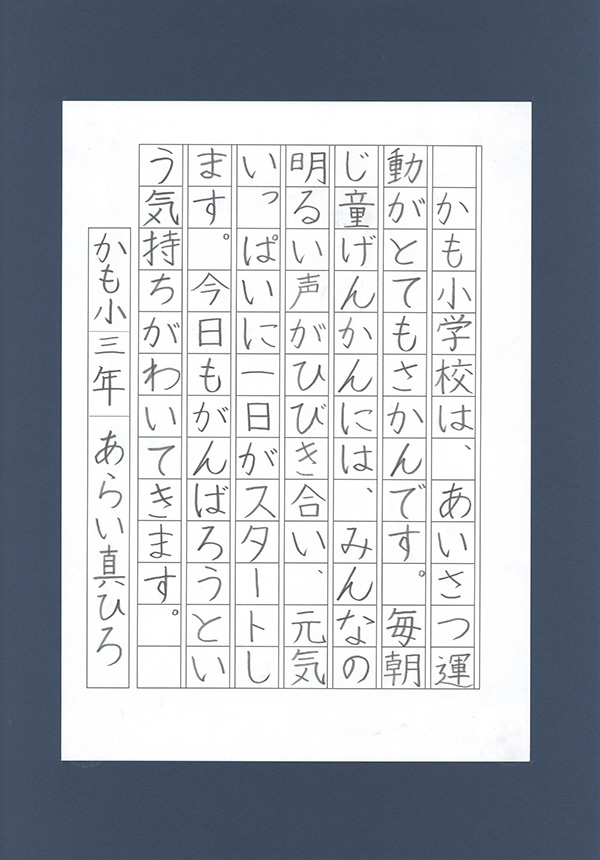 かも小学校は、あいさつ運
動がとてもさかんです。毎朝
じ童げんかんには、みんなの
明るい声がひびき合い、元気
いっぱいに一日がスタートし
ます。今日もがんばろうとい
う気持ちがわいてきます。
かも小三年 あらい真ひろ